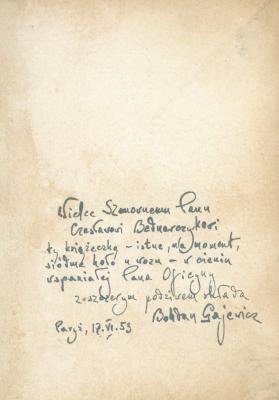 Wielce Szanownemu Panu
Czesławowi Bednarczykowi
tę książeczkę – istne, na moment,
siódme koło u wozu – w cieniu
wspaniałej Pana Oficyny
z szczerym podziwem składa
Bohdan Gajewicz
Paryż, 17.VI.53